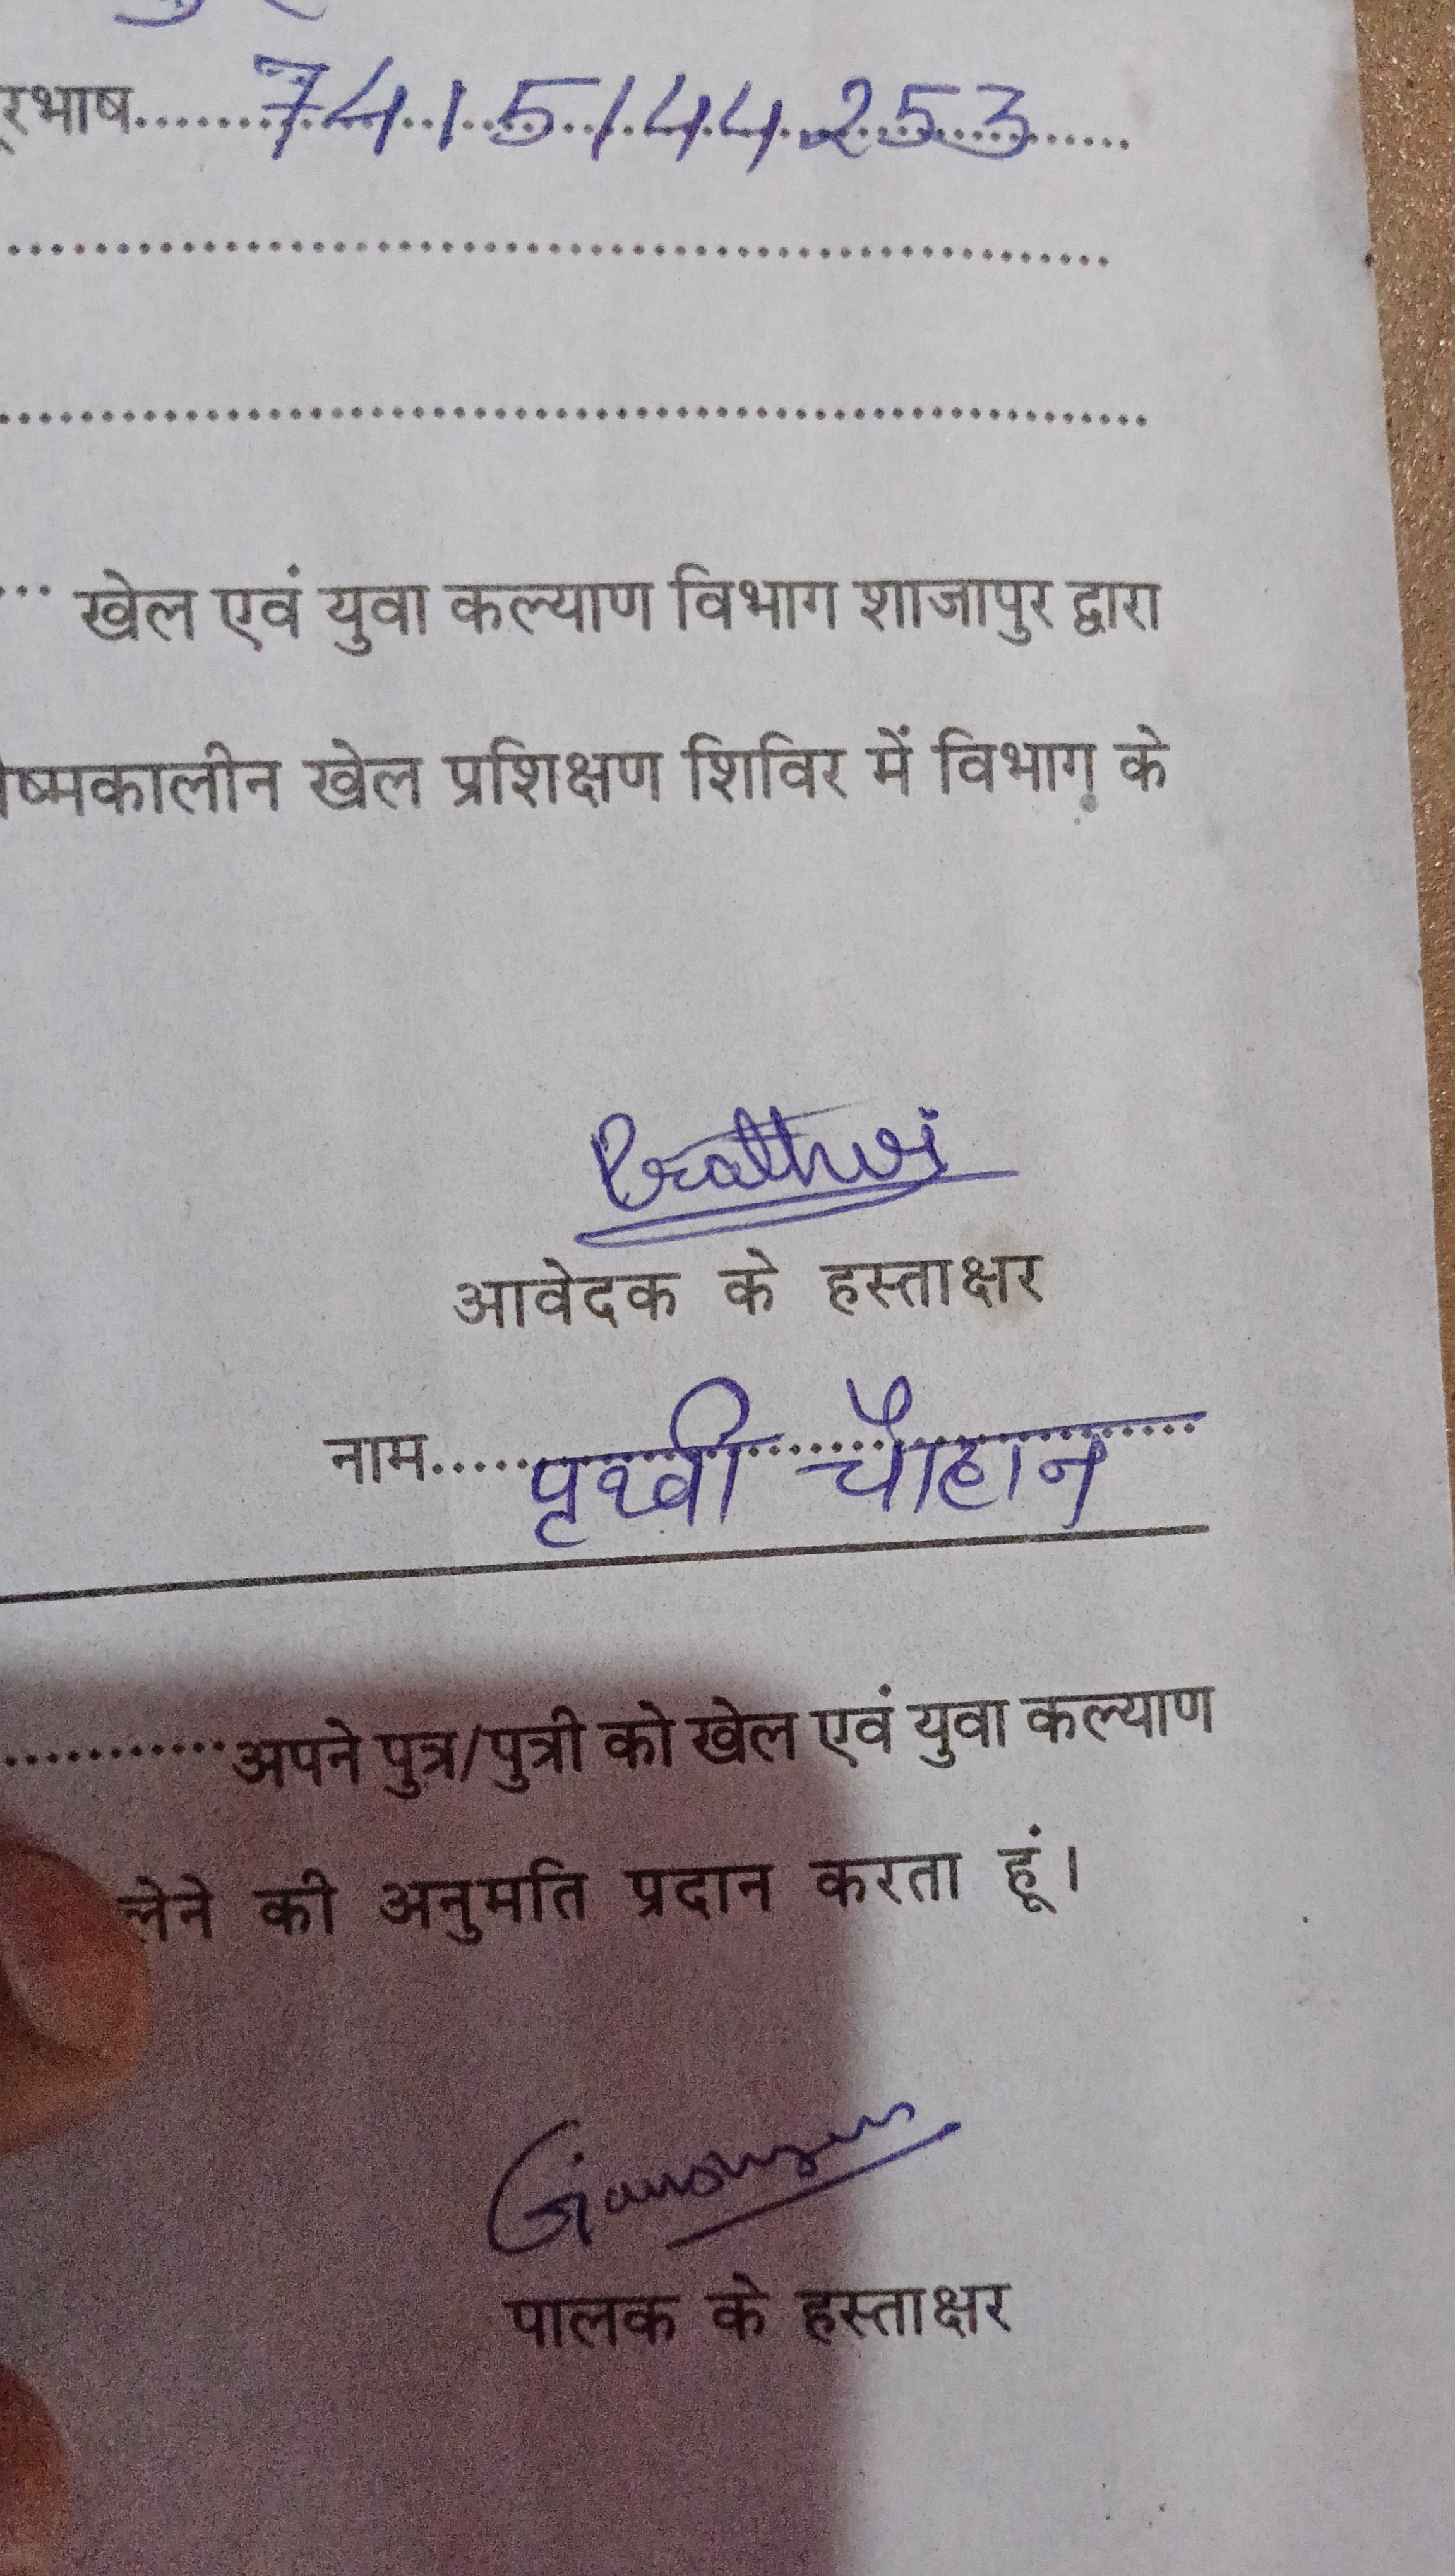 रभाष........7415144253......
खेल एवं युवा कल्याण विभाग शाजापुर द्वारा
ष्मकालीन खेल प्रशिक्षण शिविर में विभाग के
Prathvi
आवेदक के हस्ताक्षर
नाम.....पृथ्वी चौहान
...........अपने पुत्र/पुत्री को खेल एवं युवा कल्याण
लेने की अनुमति प्रदान करता हूं।
पालक के हस्ताक्षर